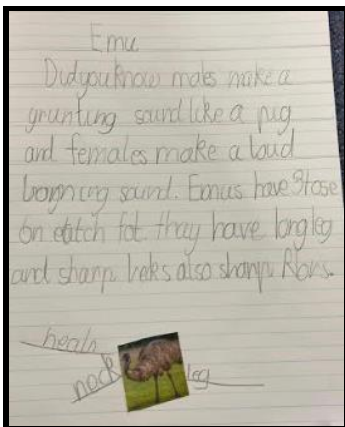 Emu
Did you know males make a
grunting sound like a pug
and females make a loud
sound. Emus have 3 tose
on eatch fot they have long leg
and sharp beks also sharp
healn
nock
leg